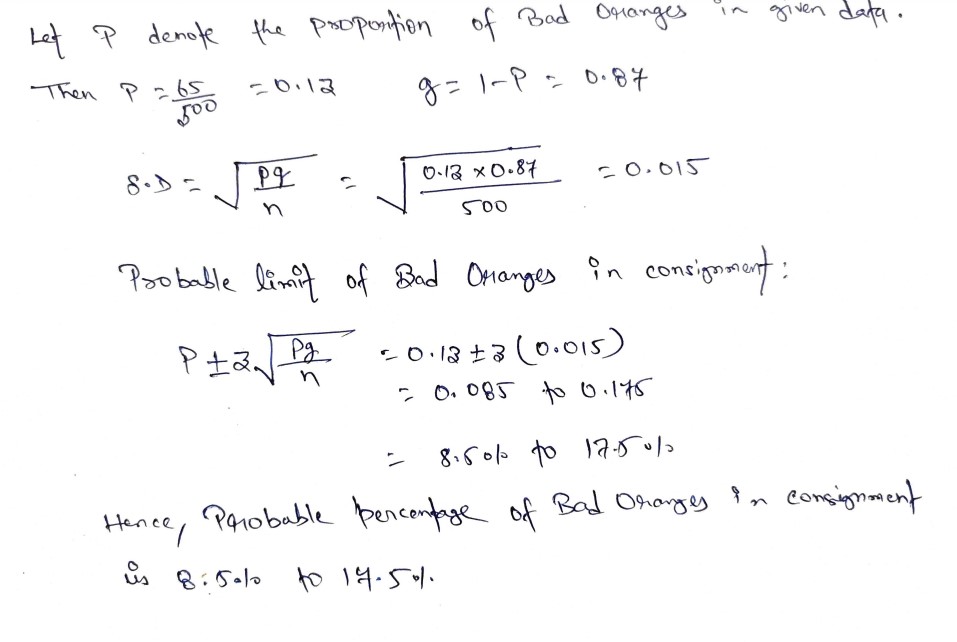 Let P denote the proportion of Bad Oranges in given data.
Then P = 65/500 = 0.13 q = 1-P = 0.87
S.D = √(pq/n) = √(0.13 x 0.87/500) = 0.015
Probable limit of Bad Oranges in consignment:
P ± 3√(pq/n) = 0.13 ± 3 (0.015)
= 0.085 to 0.175
= 8.5% to 17.5%
Hence, Probable percentage of Bad Oranges in consignment
is 8.5% to 17.5%.